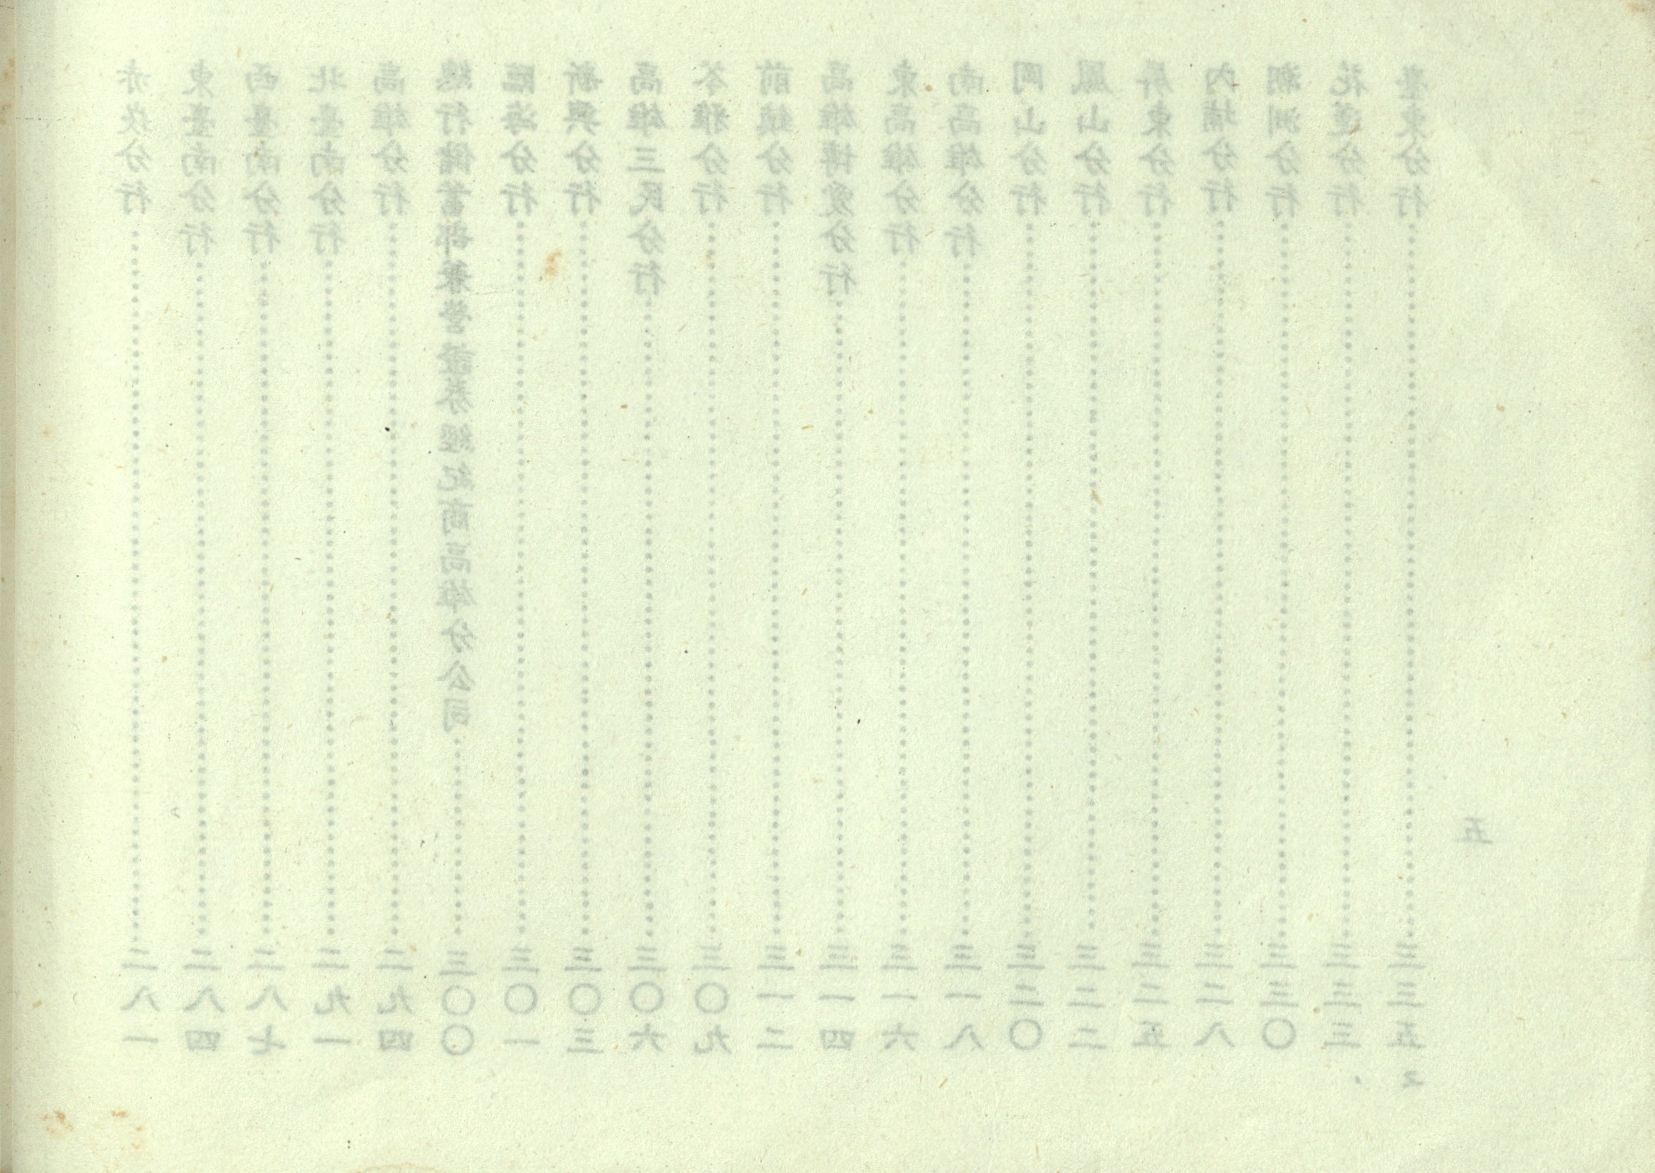 赤崁分行……二八一
東臺南分行……二八四
西臺南分行……二八七
北臺南分行……二九一
高雄分行……二九四
總行儲蓄部兼營證券經紀商高雄分公司……三〇〇
臨海分行……三〇一
新興分行……三〇三
高雄三民分行……三〇六
苓雅分行……三〇九
前鎮分行……三一二
高雄博愛分行……三一四
東高雄分行……三一六
南高雄分行……三一八
岡山分行……三二〇
鳳山分行……三二二
屏東分行……三二五
內埔分行……三二八
潮洲分行……三三〇
花蓮分行……三三三
臺東分行……三三五
五